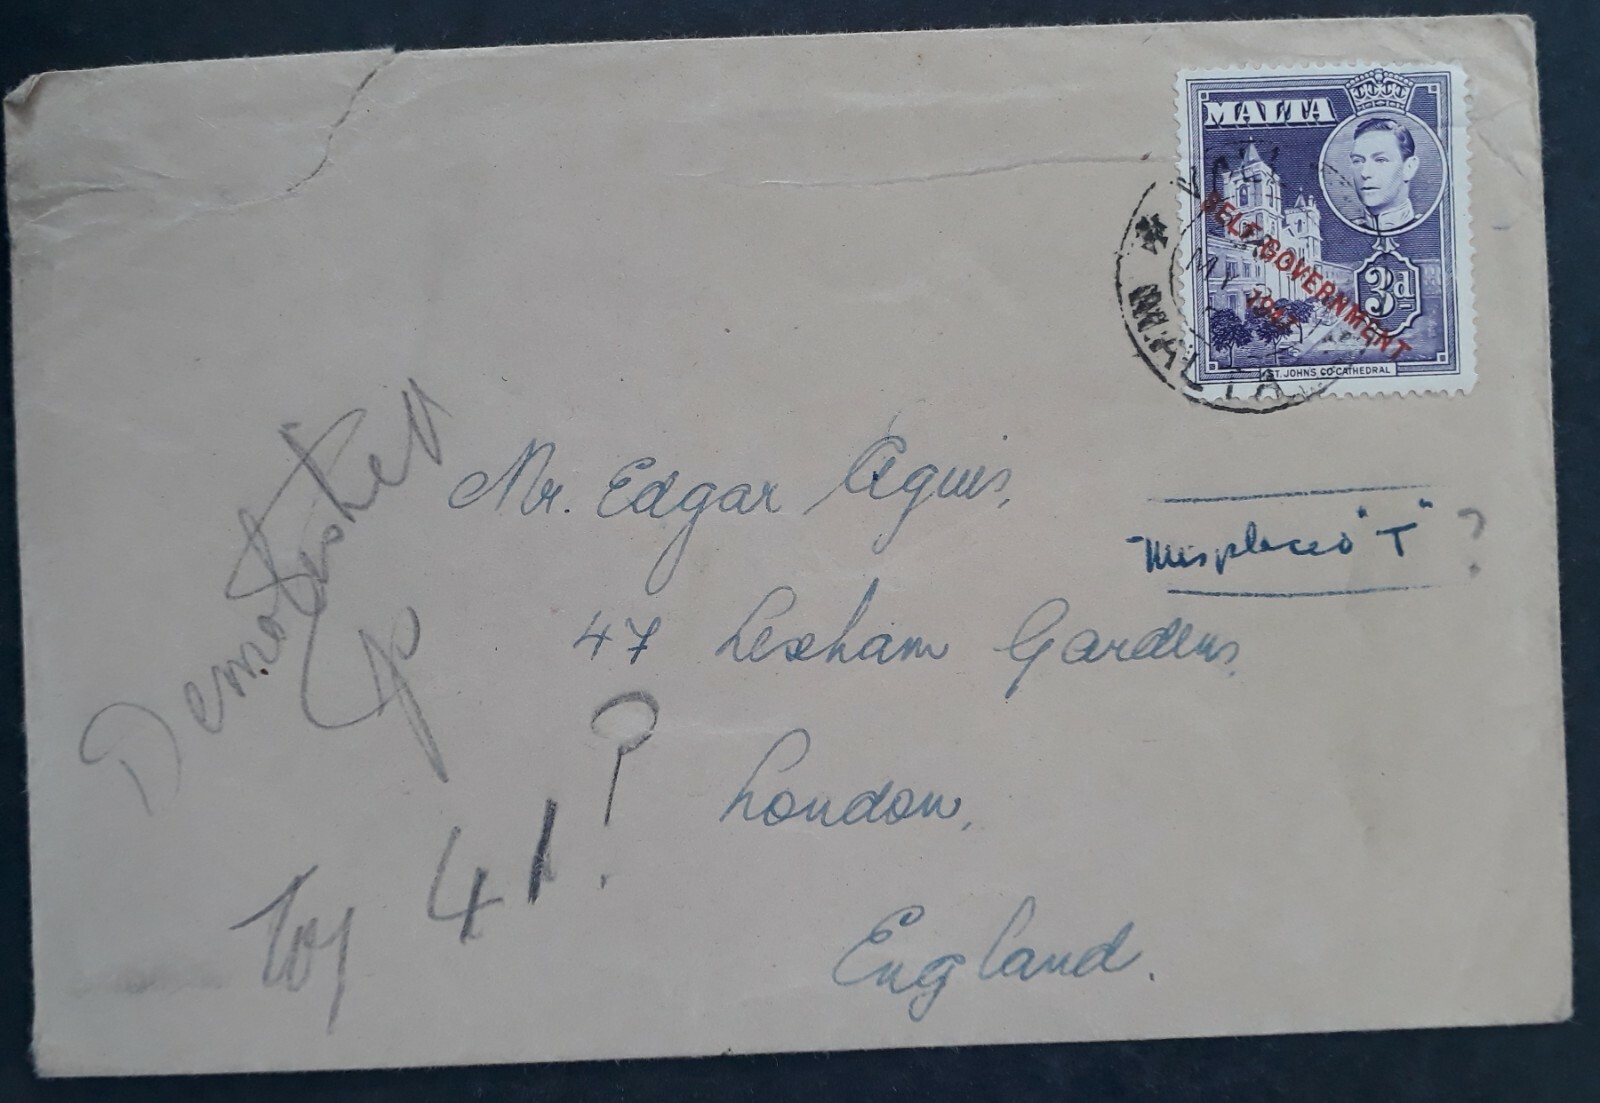 MALTA
SELF-GOVERNMENT
1947
3d
ST. JOHNS CO-CATHEDRAL
MALTA
Mr. Edgar Agius,
Misplaced "T" ?
47 Lexham Gardens,
London,
England.
Try 41 ?